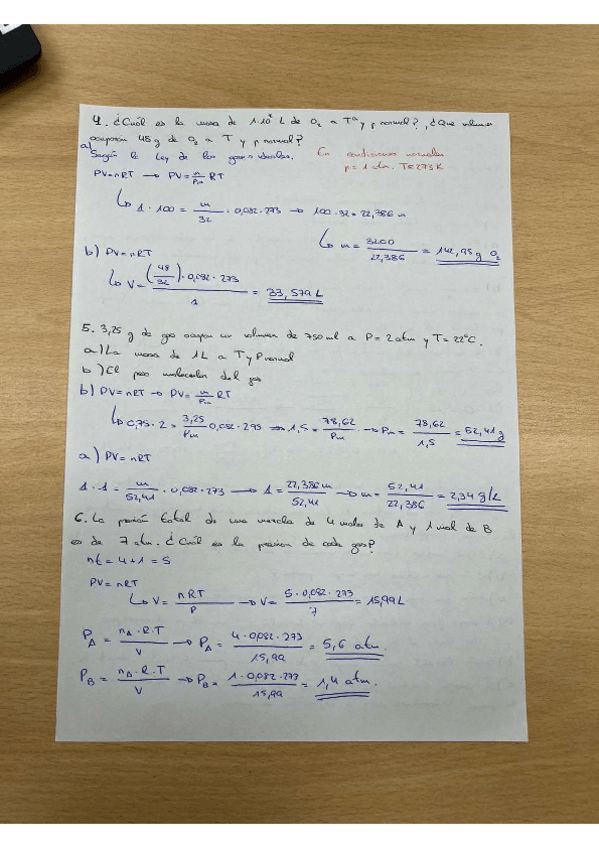 4. ¿Cuál es la masa de 1·10² L de O₂ a Tª y p normal?, ¿Que volumen
ocuparan 48 g de O₂ a T y p normal?
a) Según la Ley de los gases ideales.
En condiciones normales
p = 1 atm. T = 273 K
PV = nRT → PV = m/Pm RT
↳ 1 · 100 = m/32 · 0,082 · 273 → 100 · 32 = 22,386 m
↳ m = 3200/22,386 = 142,95 g O₂
b) PV = nRT
↳ V = (48/32) · 0,082 · 273 / 1 = 33,579 L
5. 3,25 g de gas ocupan un volumen de 750 ml a P = 2 atm y T = 22°C.
a) La masa de 1L a T y P normal
b) El peso molecular del gas
b) PV = nRT → PV = m/Pm RT
↳ 0,75 · 2 = 3,25/Pm 0,082 · 295 → 1,5 = 78,62/Pm → Pm = 78,62/1,5 = 52,41 g
a) PV = nRT
1 · 1 = m/52,41 · 0,082 · 273 → 1 = 22,386 m/52,41 → m = 52,41/22,386 = 2,34 g/L
6. La presión total de una mezcla de 4 moles de A y 1 mol de B
es de 7 atm. ¿Cuál es la presion de cada gas?
nt = 4 + 1 = 5
PV = nRT
↳ V = nRT/P → V = 5 · 0,082 · 273/7 = 15,99 L
P_A = n_A · R · T/V → P_A = 4 · 0,082 · 273/15,99 = 5,6 atm.
P_B = n_A · R · T/V → P_B = 1 · 0,082 · 273/15,99 = 1,4 atm.